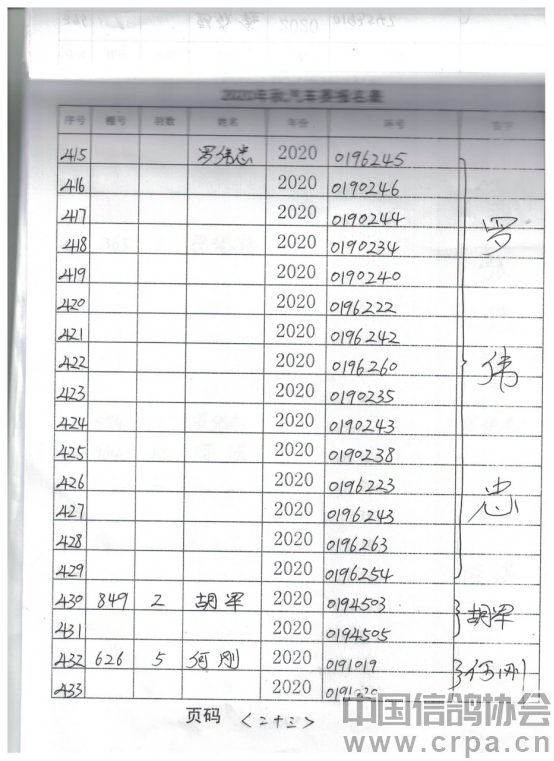 2020年秋汽车赛报名表
序号 棚号 羽数 姓名 年份 环号 签字
415 罗伟忠 2020 0196245
416 2020 0190246
417 2020 0190244
418 2020 0190234
419 2020 0190240
420 2020 0196222
421 2020 0196242
422 2020 0196260
423 2020 0190235
424 2020 0190243
425 2020 0190238
426 2020 0196223
427 2020 0196243
428 2020 0196263
429 2020 0196254
罗伟忠
430 849 2 胡军 2020 0194503 胡军
431 2020 0194505
432 626 5 何刚 2020 0191019 何刚
433 2020
页码 <二十三>
中国信鸽协会
www.crpa.cn